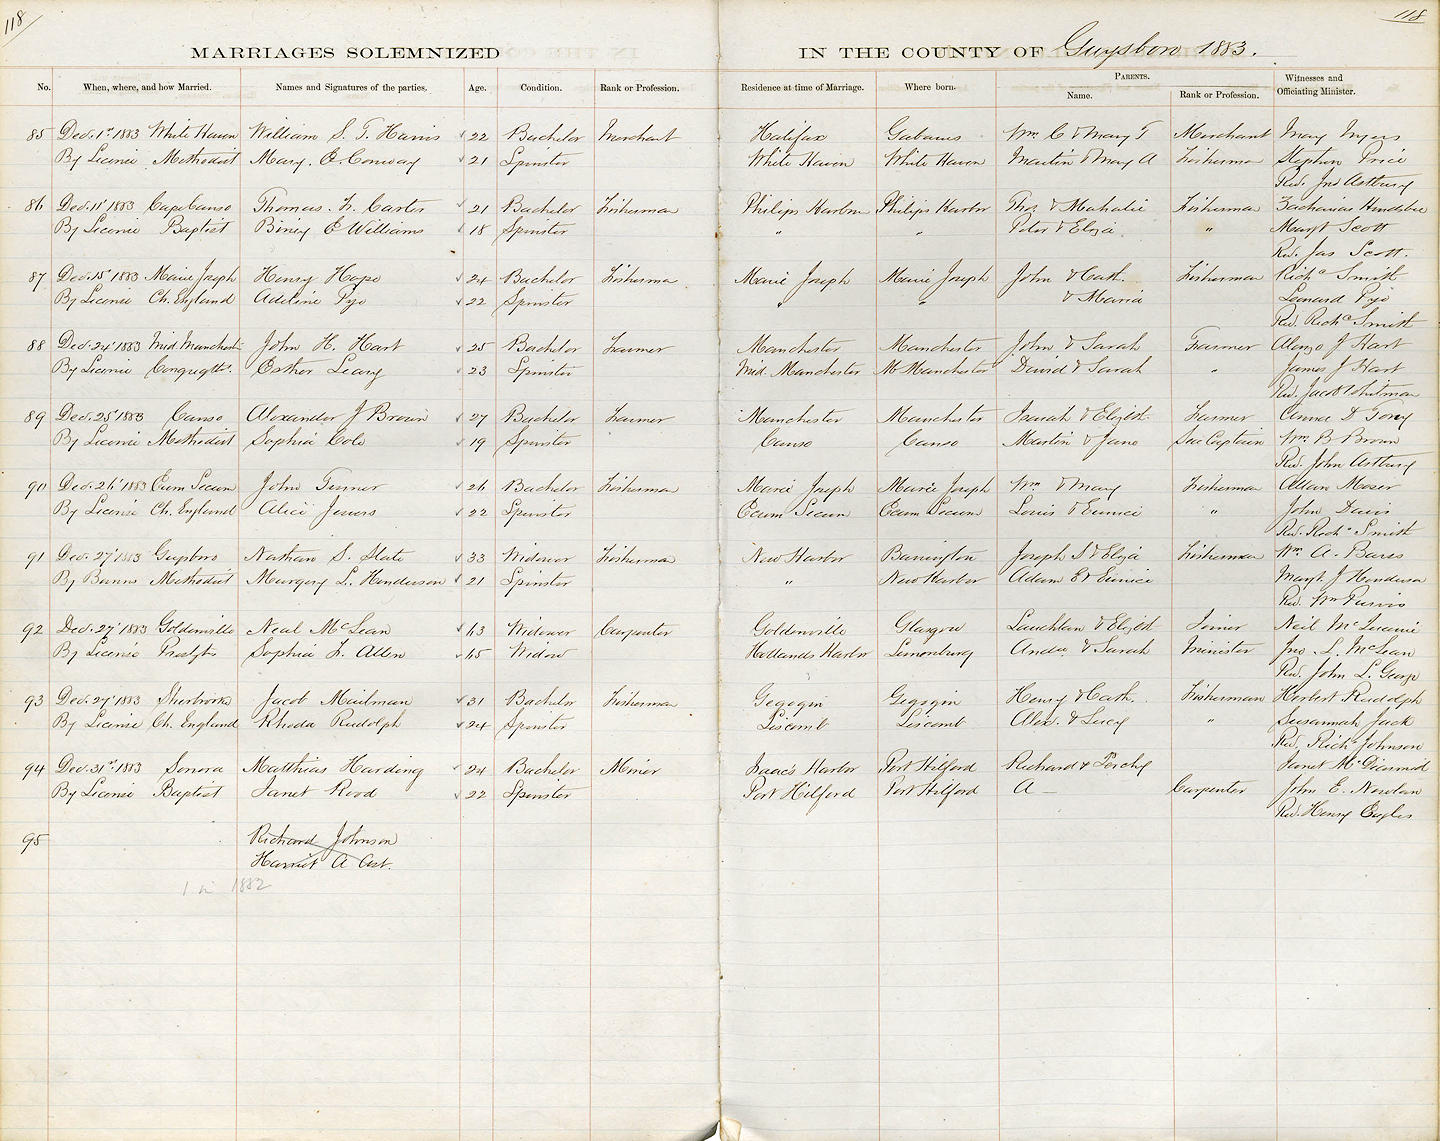 118
118
MARRIAGES SOLEMNIZED IN THE COUNTY OF Guysboro 1883.
No. When, where, and how Married. Names and Signatures of the parties. Age. Condition. Rank or Profession. Residence at time of Marriage. Where born. PARENTS. Name. Rank or Profession. Witnesses and Officiating Minister.
85 Dec. 1st 1883 White Haven William S. T. Harris 22 Bachelor Merchant Halifax Gabarus Wm C & Mary T Merchant Mary Myers
By Licence Methodist Mary. E. Conway 21 Spinster White Haven White Haven Martin & Mary A Fisherman Stephen Price
Rev. Jno Astbury
86 Dec. 11' 1883 Cape Canso Thomas. H. Carter 21 Bachelor Fisherman Philips Harbor Philips Harbor Thos & Mahalie Fisherman Zacharias
By Licence Baptist Biney E Williams 18 Spinster " " Peter & Eliza " Margt Scott
Rev. Jas Scott.
87 Dec. 15' 1883 Marie Joseph Henry Hope 24 Bachelor Fisherma Marie Joseph Marie Joseph John & Cath. Fisherman Richd Smith
By Licence Ch. England Adeline Pye 22 Spinster " " & Maria Leonard Pye
Rev. Richd Smith
88 Dec. 24' 1883 Mid. Manchestr John H. Hart 25 Bachelor Farmer Manchester Manchester John & Sarah Farmer Alonzo J Hart
By Licence Congregtl. Esther Leary 23 Spinster Mid. Manchester M Manchester David & Sarah " James J Hart
Rev. Jacob Whitman
89 Dec. 25' 1883 Canso Alexander J Brown 27 Bachelor Farmer Manchester Manchester Isaiah & Elizbt. Farmer
By Licence Methodist Sophia Cole 19 Spinster Canso Canso Martin & Jane Sea Captain Wm B Brown
Rev. John Astbury
90 Dec. 26' 1883 Ecum Secum John Turner 26 Bachelor Fisherman Marie Joseph Marie Joseph Wm & Mary Fisherman Allan Moser
By Licence Ch. England Alice Jewers 22 Spinster Ecum Secum Ecum Secum Louis & Eunice " John Davis
Rev. Richd Smith
91 Dec. 27' 1883 Guysboro Nathan S. Slate 33 Widower Fisherman New Harbor Barrington Joseph S & Eliza Fisherman Wm A. Bars
By Banns Methodist Margery L. Henderson 21 Spinster " New Harbor Adam E & Eunice Margt. J Henderson
Rev. Wm Purvis
92 Dec. 27' 1883 Goldenville Neal McLean 43 Widower Carpenter Goldenville Glasgow Lauchlan & Elizbt Joiner Neil
By Licence Presbyts Sophia H. Allen 45 Widow Hollands Harbr Lunenburg Andw & Sarah Minister Jno. L. McLean
Rev. John L. George
93 Dec. 27' 1883 Sherbrooke Jacob Mailman 31 Bachelor Fisherman Gegogin Gegogin Henry & Cath. Fisherman Herbert Rudolph
By Licence Ch. England Rhoda Rudolph 24 Spinster Liscomb Liscomb Alex. & Lucy " Susannah Jack
Rev. Richd Johnson
94 Dec. 31st 1883 Sonora Matthias Harding 24 Bachelor Miner Isaac's Harbor Port Hilford Richard & Janet McDiarmid
By Licence Baptist Janet Rood 22 Spinster Port Hilford Port Hilford A — Carpenter John E. Newton
Rev. Henry Eagles
95 Richard Johnson
Harriet A Ast.
1 in 1882